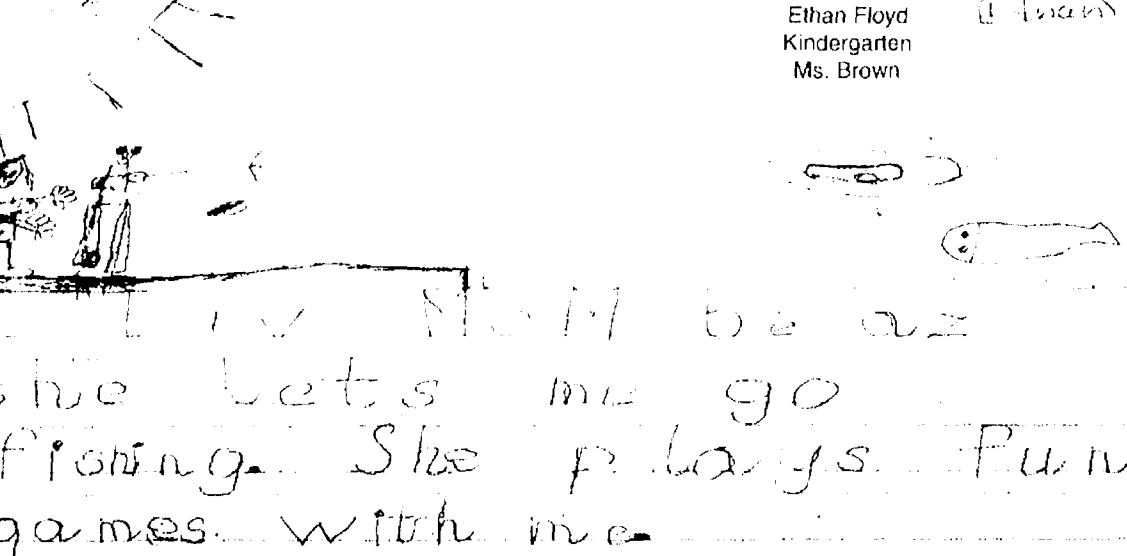 Ethan Floyd
Kindergarten
Ms. Brown
MoM be az
she Lets me go
fishing. She plays Fun
games with me.